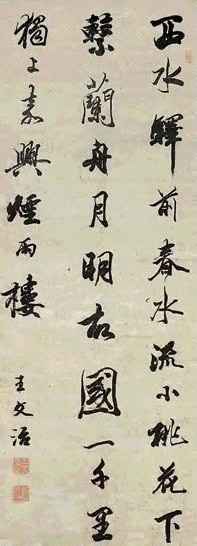 西水驛前春水流小桃花下
繫蘭舟月明故國一千里
獨上嘉興煙雨樓
王文治